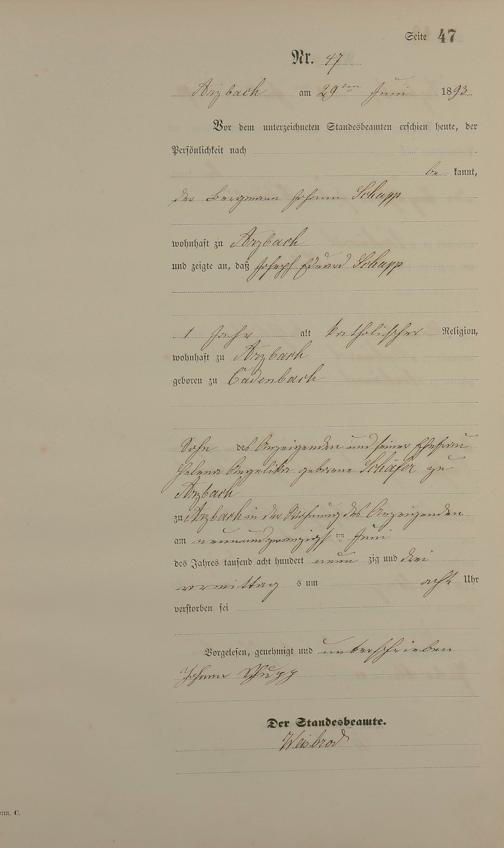 Seite 47
Nr. 47
Arzbach am 29ten Juni 1893.
Vor dem unterzeichneten Standesbeamten erschien heute, der
Persönlichkeit nach
be kannt,
der Bergmann Johann Schupp
wohnhaft zu Arzbach
und zeigte an, daß Joseph Eduard Schupp
1 Jahr alt katholischer Religion,
wohnhaft zu Arzbach
geboren zu Cadenbach
Sohn des Anzeigenden und seiner Ehefrau
Helena Angelika geborene Schäfer zu
Arzbach
zu Arzbach in der Wohnung des Anzeigenden
am neunundzwanzigsten Juni
des Jahres tausend acht hundert neun zig und drei
vormittag s um acht Uhr
verstorben sei
Vorgelesen, genehmigt und unterschrieben
Johann Schupp
Der Standesbeamte.
Weisbrod